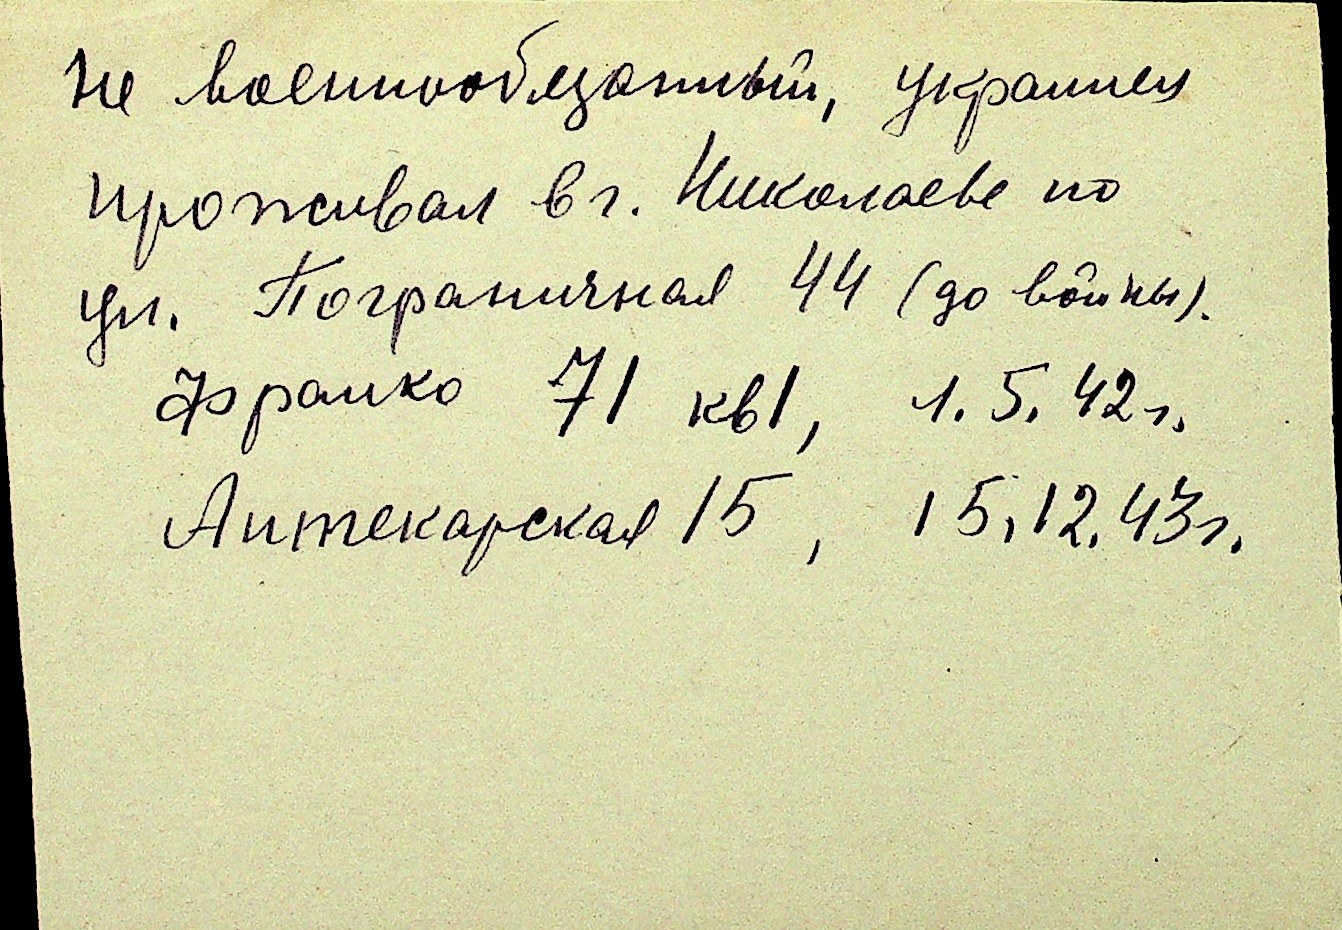 Не военнообязанный, украинец
проживал в г. Николаеве по
ул. Пограничная 44 (до войны).
Франко 71 кв 1, 1.5.42 г.
Аптекарская 15, 15.12.43 г.